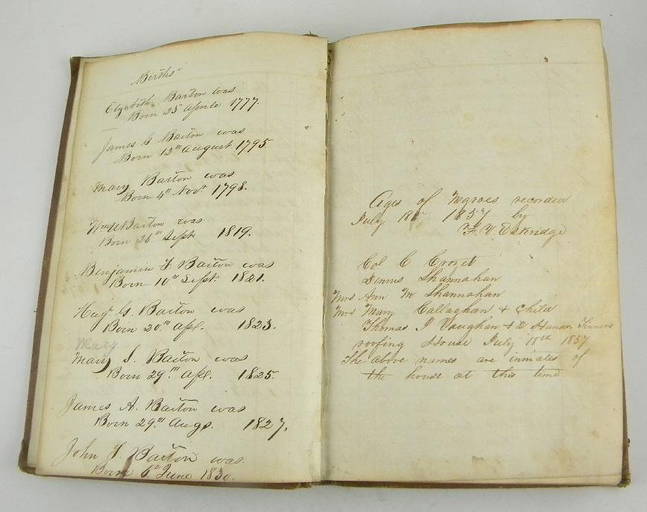 Births
Elizabeth Barton was
Born 25 Aprile 1777.
James C Barton was
Born 13th August 1795
Mary Barton was
Born 4th Novr 1798.
Barton was
Born 26th Sept 1819.
Benjamin F. Barton was
Born 10th Sept. 1821.
Hugh G. Barton was
Born 20th Apl. 1823.
Mary
Mary S. Barton was
Born 29th Apl. 1825.
James A. Barton was
Born 29th Augs. 1827.
John F Barton was
Born 6th June 1830.
Ages of Negroes recorded
July 18th 1857 by
Eskridge
Col C Crozet
Dennis Shannahan
Mrs Ann M Shannahan
Mrs Mary Callaghan & Child
Thomas J Vaughan &
roofing House July 18th 1857
The above names are inmates of
the house at this time